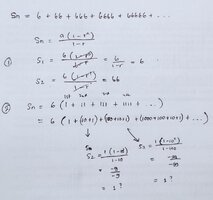 Sn = 6 + 66 + 666 + 6666 + 66666 + ...
Sn = a(1-rⁿ) / 1-r
① S1 = 6(1-r¹) / 1-r = 6 / 1-r = 6
S2 = 6(1-r²) / 1-r = 66
1st 2nd 3rd
② Sn = 6 (1 + 11 + 111 + 1111 + ...)
= 6 (1 + (10+1) + (100+10+1) + (1000+100+10+1) + ...)
S2 = 1(1-10) / 1-10 S3 = 1(1-10²) / 1-100
= -9 / -9 = -99 / -99
= 1? = 1?